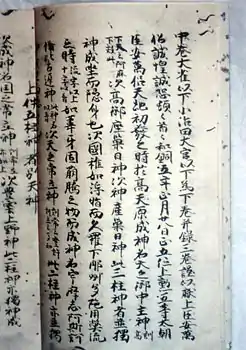 中卷大雀以下小治田大宮以下爲下卷并録三卷謹以献上臣安萬
侶誠惶誠恐頓々首々 和銅五年正月廿八日正五位上勳五等太朝
臣安萬侶 天地初發之時於高天原成神名天之御中主神訓高
下天云阿麻下效此 次高御產巢日神次神產巢日神此三柱神者並獨
神成坐而隱身也次國稚如浮脂而久羅下那州多陀用弊流
之時流字以上十字以音 如葦牙因萌騰之物而成神名宇麻志阿斯訶
備比古遲神 次天之常立神 此二柱神亦並獨
上件五柱神者別天神
次成神名國之常立神 次豊雲上野神此二柱神亦獨神成